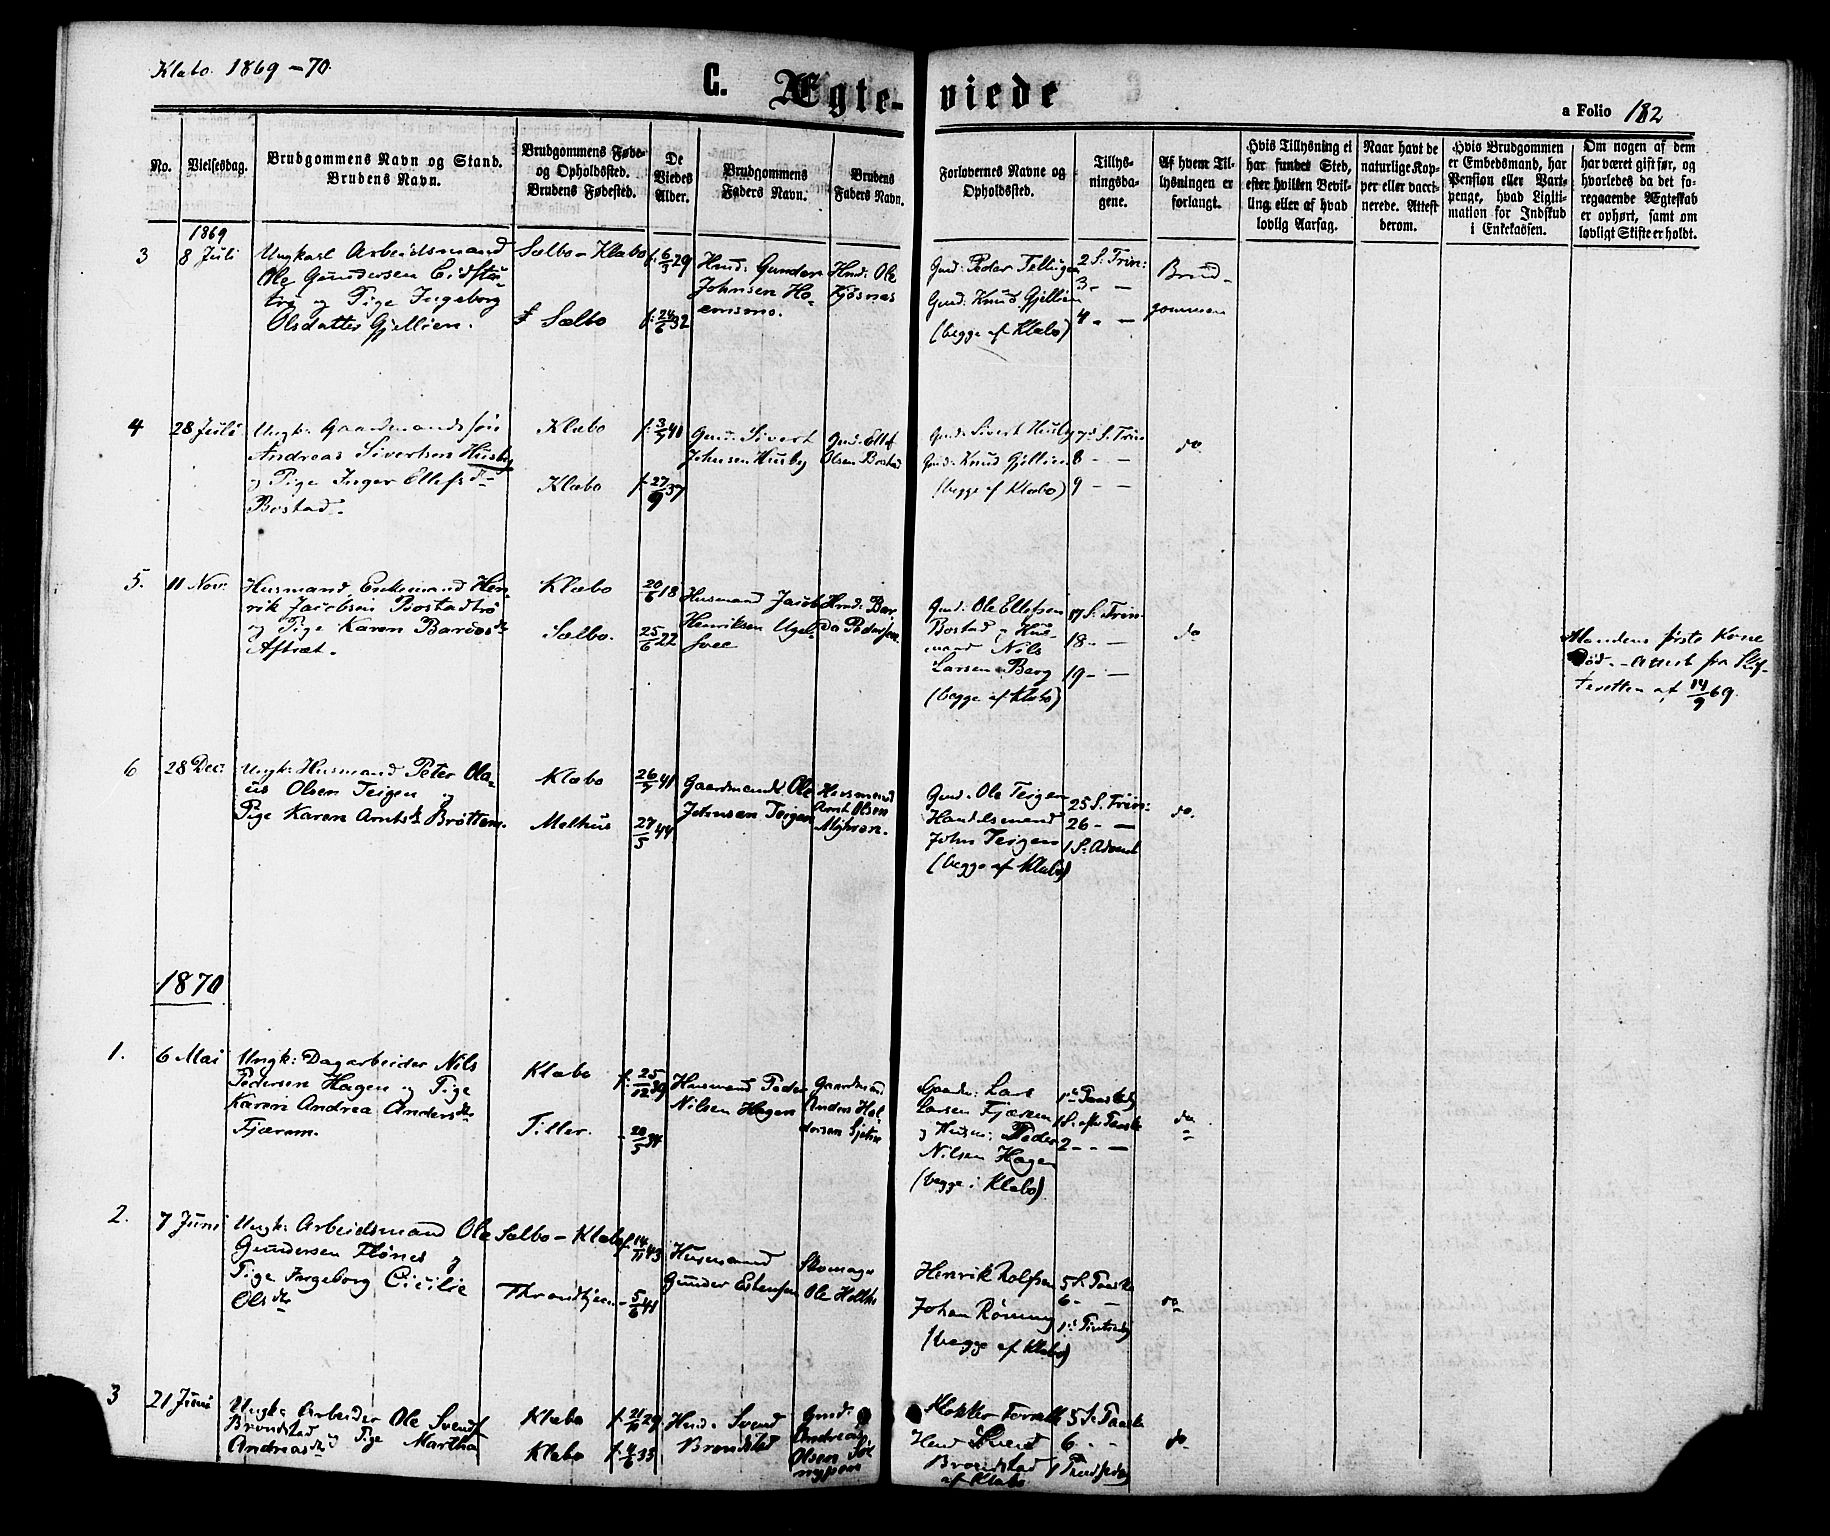 Klæbo. 1869-70.
C. Ægte-viede
a Folio 182
No.
Vielsesdag.
Brudgommens Navn og Stand.
Brudens Navn.
Brudgommens Føde-
og Opholdssted.
Brudens Fødested.
De
Viedes
Alder.
Brudgommens
Faders Navn.
Brudens
Faders Navn.
Forlovernes Navne og
Opholdssted.
Tillys-
ningsda-
gene.
Af hvem Til-
lysningen er
forlangt.
Hvis Tillysning ei
har fundet Sted,
efter hvilken Bevil-
ling eller af hvad
lovlig Aarsag.
Naar havt de
naturlige Kop-
per eller vacci-
nerede. Attest
derom.
Hvis Brudgommen
er Embedsmand, har
Pension eller Vart-
penge, hvad Ligiti-
mation for Indskud
i Enkekassen.
Om nogen af dem
har været gift før, og
hvorledes da det fo-
regaaende Ægteskab
er ophørt, samt om
lovligt Skifte er holdt.
1869
3
8 Juli
Ungkarl Arbeidsmand
Ole Gundersen Eidstu-
trø og Pige Ingeborg
Olsdatter Gjellien.
Sælbo - Klæbo
Sælbo
f: 6/3 29
f: 24/6 32
Hmd: Gunder
Johnsen Ho-
emsmo.
Hmd: Ole
Kjøsnæs
Gmd: Peder Tellugen
Gmd: Knud Gjellien
(begge af Klæbo)
2 S: Trin:
3 - -
4 - -
Brud-
gommen
4
28 Juli
Ungk: Gaardmandssøn
Andreas Sivertsen Husby
og Pige Inger Ellefsdtr
Bostad.
Klæbo
Klæbo
f: 3/7 40
f: 27/9 37
Gmd: Sivert
Johnsen Husby
Gmd: Ellef
Olsen Bostad
Gmd: Sivert Husby
Gmd: Knud Gjellien
(begge af Klæbo)
7d S: Trin
8 - -
9 - -
do.
5.
11 Nov:
Husmand, Enkemand Hen-
rik Jacobsen Bostadtrø
og Pige Karen Bardosdtr
Aftræt.
Klæbo
Sælbo.
20/6 18
25/6 22
Husmand Jacob
Henriksen Ugel-
svee
Hmd: Bar
do Pedersen
Gmd: Ole Ellefsen
Bostad og Hus-
mand Nils
Larsen Berg
(begge af Klæbo)
17 S: Trin
18 - -
19 - -
do
Mandens første Kone
død. - Attest fra Skif-
teretten af 14/9 69.
6
28 Dec:
Ungk: Husmand Peter Ola-
us Olsen Teigen og
Pige Karen Arntsdtr Brøttem.
Klæbo
Melhus
26/7 41
27/5 44
Gaardmand Ole
Johnsen Teigen
Husmand
Arnt Olsen
Myhren.
Gmd. Ole Teigen
Handelsmand
John Teigen
(begge af Klæbo)
25 S. Trin:
26 - -
1 S: Advent
do.
1870
1.
6 Mai
Ungk: Dagarbeider Nils
Pedersen Hagen og Pige
Karen Andrea Andersdtr
Fjærem.
Klæbo
Tiller.
f: 25/12 39
- 20/5 34
Husmand Peder
Nilsen Hagen
Gaardmand
Anders Hal-
dorsen
Gaardm: Lars
Larsen Fjærem
og Husm: Peder
Nilsen Hagen
(begge i Klæbo)
1d Paaskedg
1 S. efter Paaske
2 - -
do
2.
7 Juni
Ungk: Arbeidsmand Ole
Gundersen Flønes og
Pige Ingeborg Cicilie
Olsdtr
Sælbo - Klæbo
Throndhjem
f: 14/11 43
- 5/6 41
Husmand
Gunder Estensen
Skomager
Ole Holthe
Henrik Rolfsen
Johan Rønning
(begge af Klæbo)
5 S. Paaske
6 - -
1d Pintsedg
do
3
21 Juni
Ungk: Arbeider Ole Svends
Brøndstad og Pige Martha
Andreasdtr
Klæbo
Klæbo
f: 21/11 29
f: 4/6 33
Hmd: Svend
Brøndstad
Gmd:
Andreas
Olsen
Klokker
Hmd Svend
Brøndstad
af Klæbo
5 S. Paaske
6 - -
1 Pindsedag
do